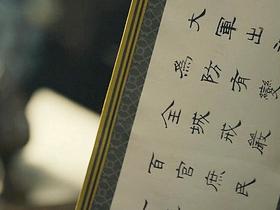 大軍出
為防齊變
全城戒嚴
百官庶民